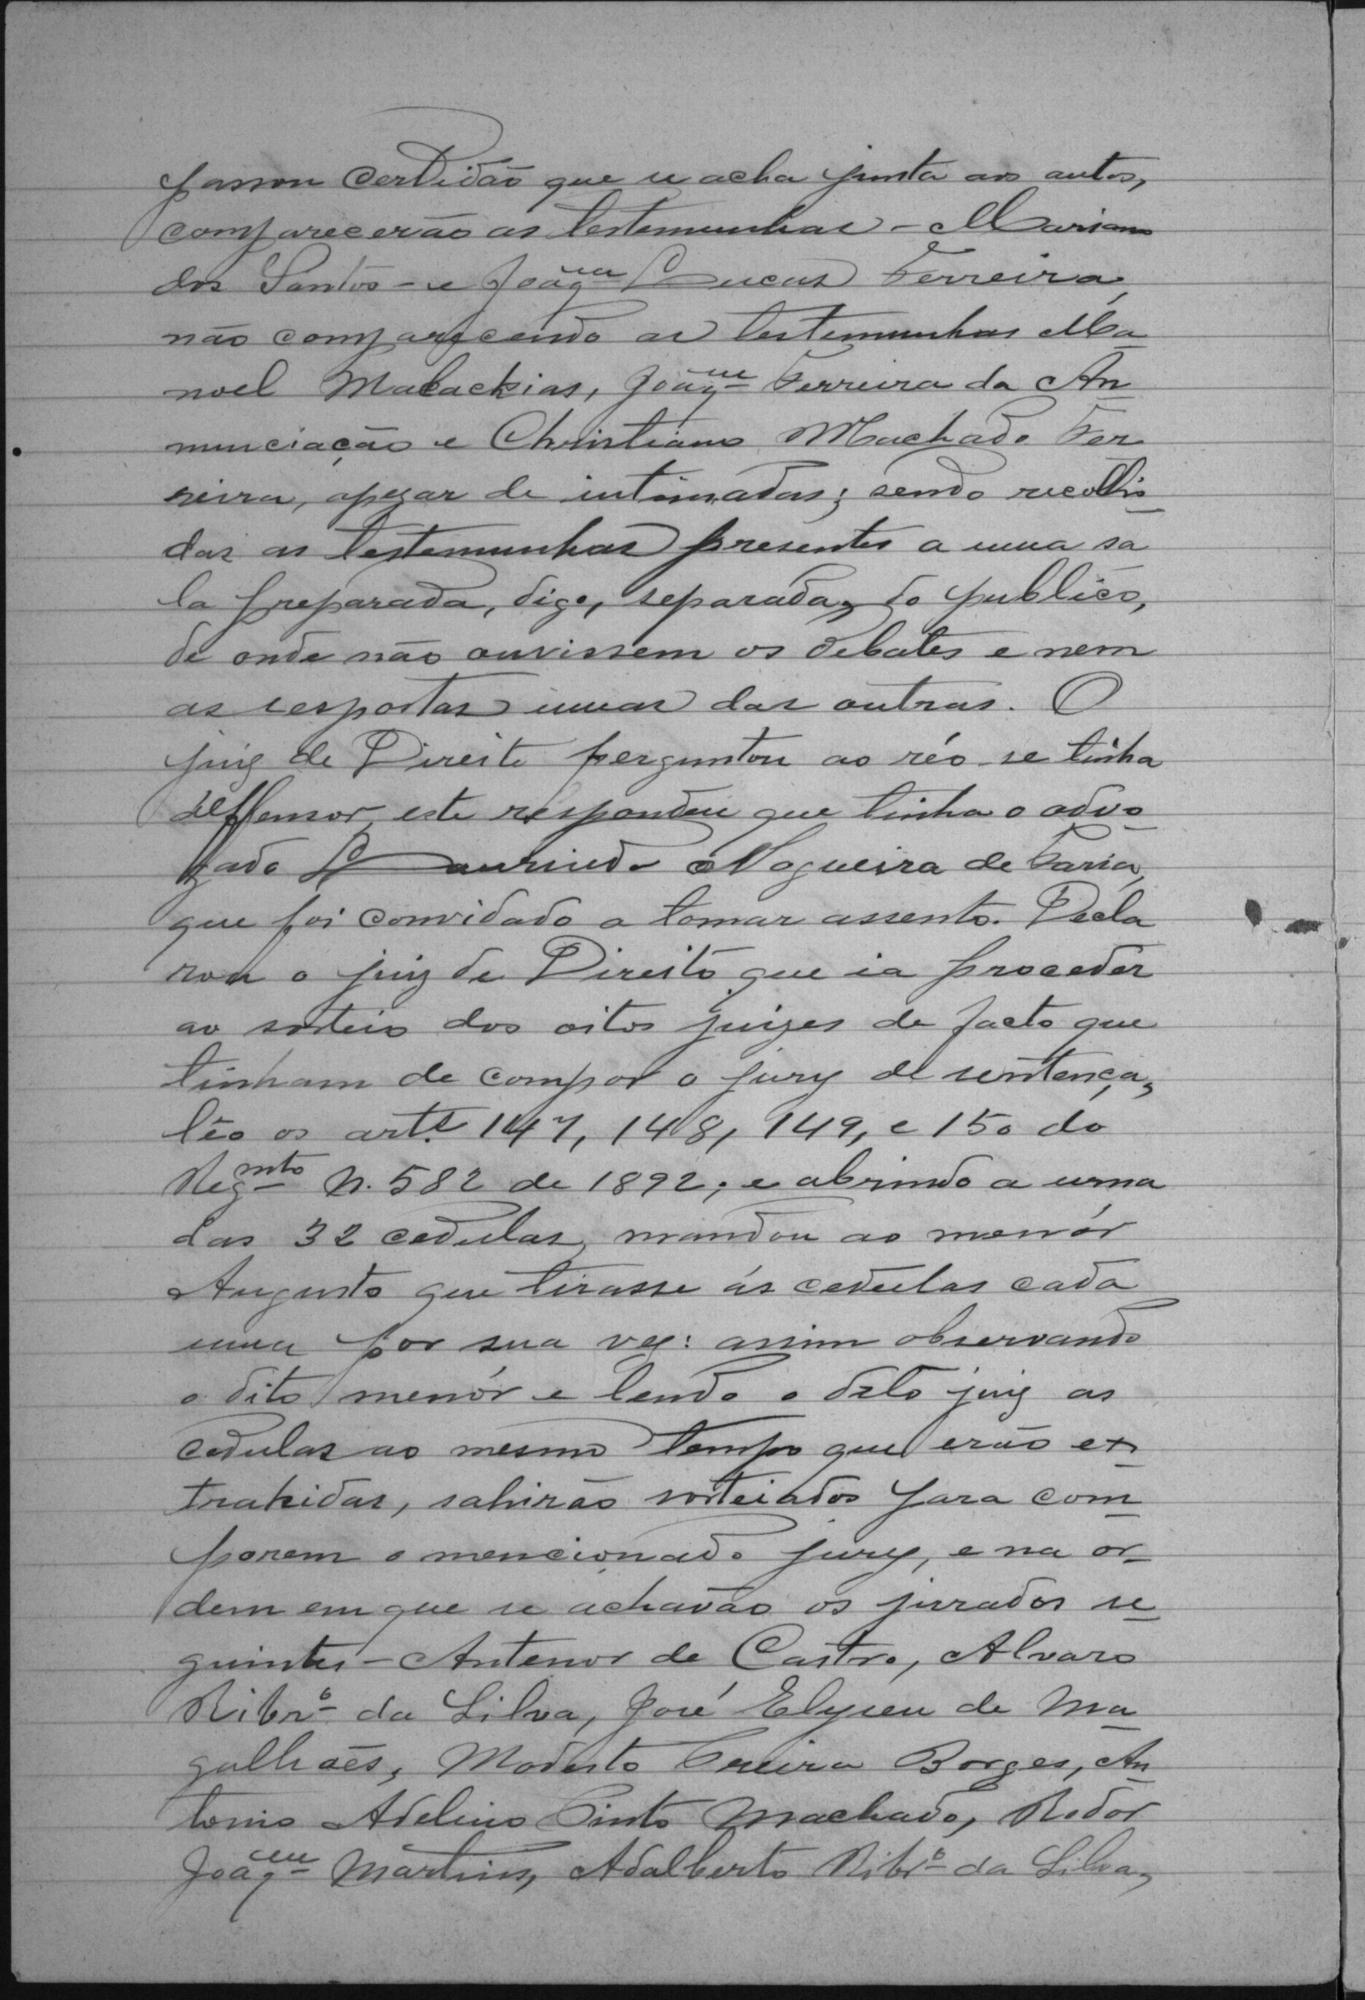 passou certidão que se acha junta aos autos,
comparecerão as testemunhas - Mariano
dos Santos - e Joãqm Lucas Ferreira,
não comparecendo as testemunhas Ma
noel Malachias, Joãqm Ferreira da An
nunciação e Christiano Machado Fer
reira, apezar de intimadas; sendo recolhi
das as testemunhas presentes a uma sa
la preparada, digo, separada, do publico,
de onde não ouvissem os debates e nem
as respostas umas das outras. O
juiz de Direito perguntou ao réo se tinha
deffensor, este respondeu que tinha o advo
gado Laurindo Nogueira de Faria,
que foi convidado a tomar assento. Decla
rou o juiz de Direito que ia proceder
ao sorteio dos oitos juizes de facto que
tinham de compor o jury de sentença,
lêo os arts 147, 148, 149, e 150 do
Regmto N. 582 de 1892; e abrindo a urna
das 32 cedulas, mandou ao menór
Augusto que tirasse ás cedulas cada
uma por sua vez: assim observando
o dito menór e lendo o dito juiz as
cedulas ao mesmo tempo que erão ex
trahidas, sahirão sorteiados para com
porem o mencionado jury, e na or
dem em que se achavão os jurados se
guintes - Antenor de Castro, Alvaro
Ribro da Silva, José Elyseu de Ma
galhães, Modesto Pereira Borges, An
tonio Adelino Pinto Machado, Rodor
Joãqm Martins, Adalberto Ribro da Silva,